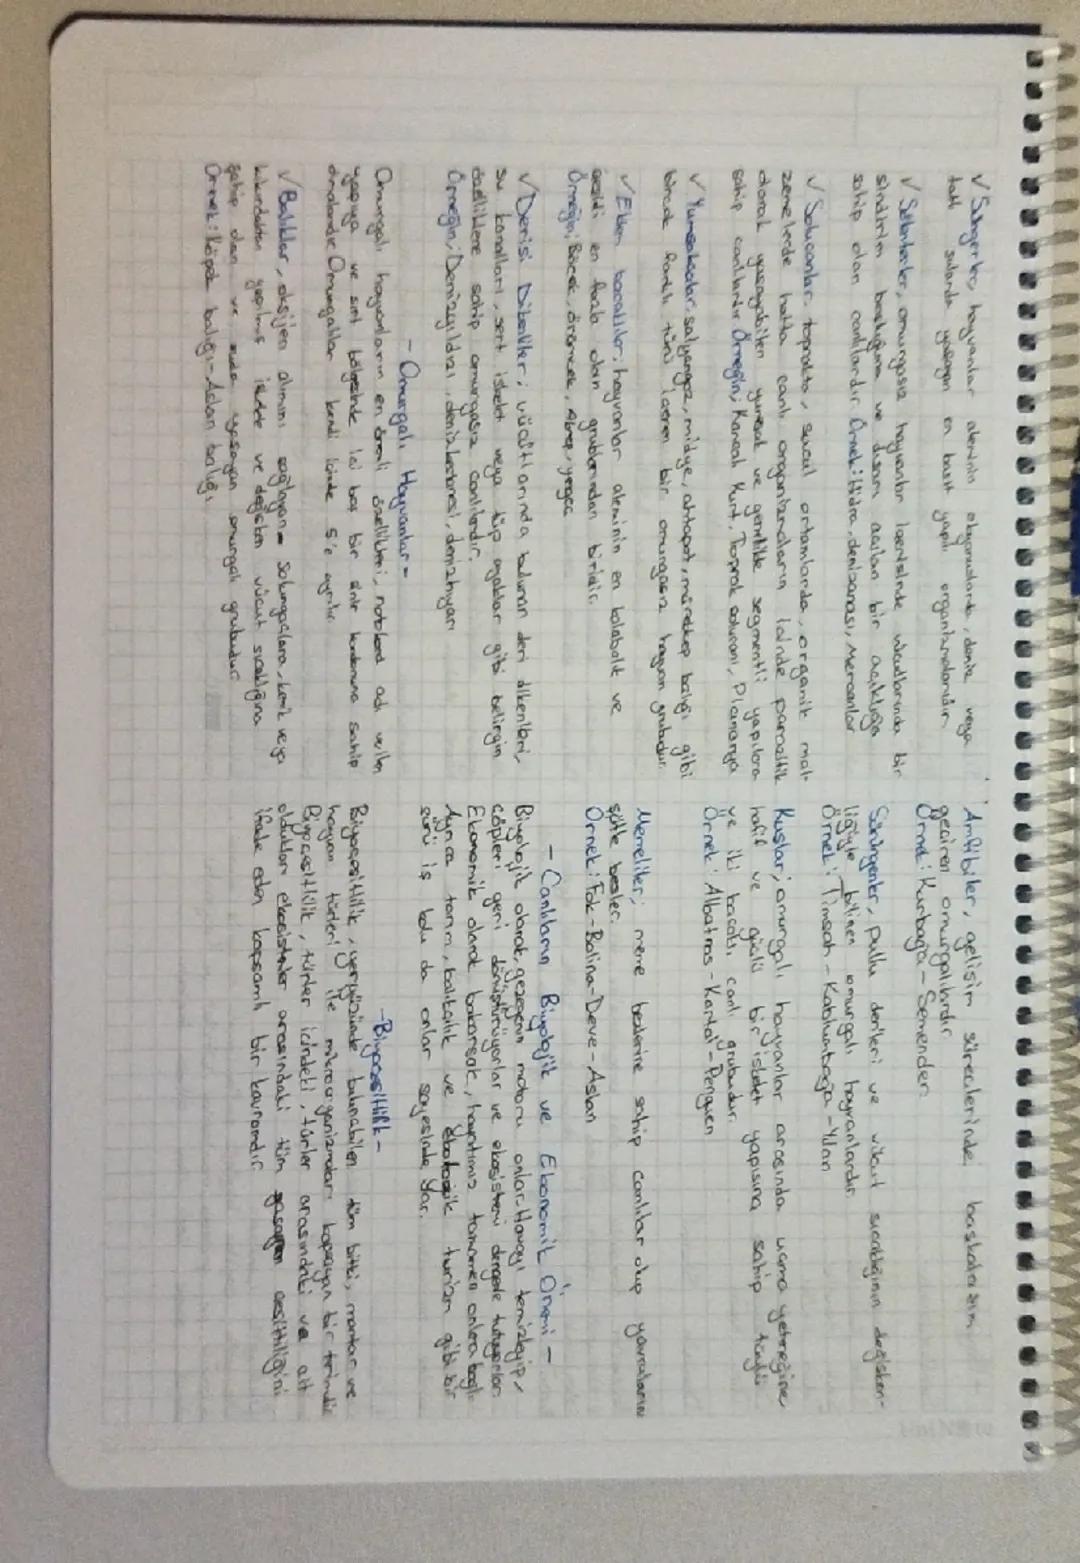 √ Süngerler, hayvanlar aleminin okyanuslarda, deniz veya
tatlı sularda yaşayan en basit yapılı organizmalarıdır.
√ Sölenterler, omurgasız hayvanlar içerisinde vücutlarında bir
sindirim boşluğuna ve dışarı açılan bir açıklığa
sahip olan canlılardır. Örnek: Hidra, denizanası, Mercanlar
√ Solucanlar, toprakta, sucul ortamlarda, organik mal-
zemelerde hatta canlı organizmaların içinde parazitik
olarak yaşayabilen yumuşak ve genellikle segmentli yapılara
sahip canlılardır. Örneğin; Kancalı Kurt, Toprak solucanı, Planarya
√ Yumuşakçalar, salyangoz, midye, ahtapot, mürekkep balığı gibi
birçok farklı türü içeren bir omurgasız hayvan grubudur.
√ Eklem bacaklılar; hayvanlar aleminin en kalabalık ve
çeşitli en fazla olan gruplarından biridir.
Örneğin; Böcek, örümcek, Akrep, yengeç
√ Derisi Dikenliler; vücutlarında bulunan deri dikenleri,
su kanalları, sert iskelet veya tüp ayaklar gibi belirgin
özelliklere sahip omurgasız canlılardır.
Örneğin; Denizyıldızı, denizkestanesi, denizhıyarı
- Omurgalı Hayvanlar -
Omurgalı hayvanların en önemli özellikleri, notokord adı verilen
yapıya ve sırt bölgesinde içi boş bir sinir kordonuna sahip
olmalarıdır. Omurgalılar kendi içinde 5'e ayrılır.
√ Balıklar, oksijen alımını sağlayan solungaçlara, kemik veya
kıkırdaktan yapılmış iskelete ve değişken vücut sıcaklığına
sahip olan ve suda yaşayan omurgalı grubudur.
Örnek: Köpek balığı - Aslan balığı
Amfibiler, gelişim süreçlerinde başkalaşım
geçiren omurgalılardır.
Örnek: Kurbağa - Semender
Sürüngenler, pullu derileri ve vücut sıcaklığının değişken-
liğiyle bilinen omurgalı hayvanlardır.
Örnek: Timsah - Kaplumbağa - Yılan
Kuşlar; omurgalı hayvanlar arasında uçma yeteneğine
hafif ve güçlü bir iskelet yapısına sahip tüylü
ve iki bacaklı canlı grubudur.
Örnek: Albatros - Kartal - Penguen
Memeliler; meme bezlerine sahip canlılar olup yavrularını
sütle besler.
Örnek: Fok - Balina - Deve - Aslan
- Canlıların Biyolojik ve Ekonomik Önemi -
Biyolojik olarak, gezegenin motoru onlar. Havayı temizleyip,
çöpleri geri dönüştürüyorlar ve ekosistemi dengede tutuyorlar.
Ekonomik olarak bakarsak, hayatımız tamamen onlara bağlı.
Ayrıca tarım, balıkçılık ve ekolojik turizm gibi bir
sürü iş kolu da onlar sayesinde var.
- Biyoçeşitlilik -
Biyoçeşitlilik, yeryüzünde bulunabilen tüm bitki, mantar ve
hayvan türleri ile mikroorganizmaları kapsayan bir terimdir.
Biyoçeşitlilik, türler içindeki, türler arasındaki ve ait
oldukları ekosistemler arasındaki tüm yaşayan çeşitliliğini
ifade eden kapsamlı bir kavramdır.